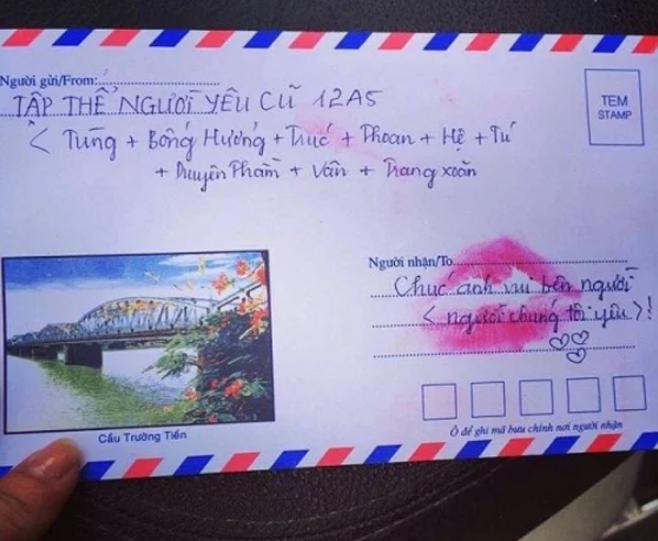 Người gửi/From:
TẬP THỂ NGƯỜI YÊU CŨ 12A5
< Tùng + Bông Hường + Trúc + Thoan + Hệ + Tú
+ Duyên Phạm + Vân + Trang xoăn
TEM
STAMP
Người nhận/To
Chúc anh vui bên người
< người chúng tôi yêu >!
Cầu Trường Tiền
Ô để ghi mã bưu chính nơi người nhận